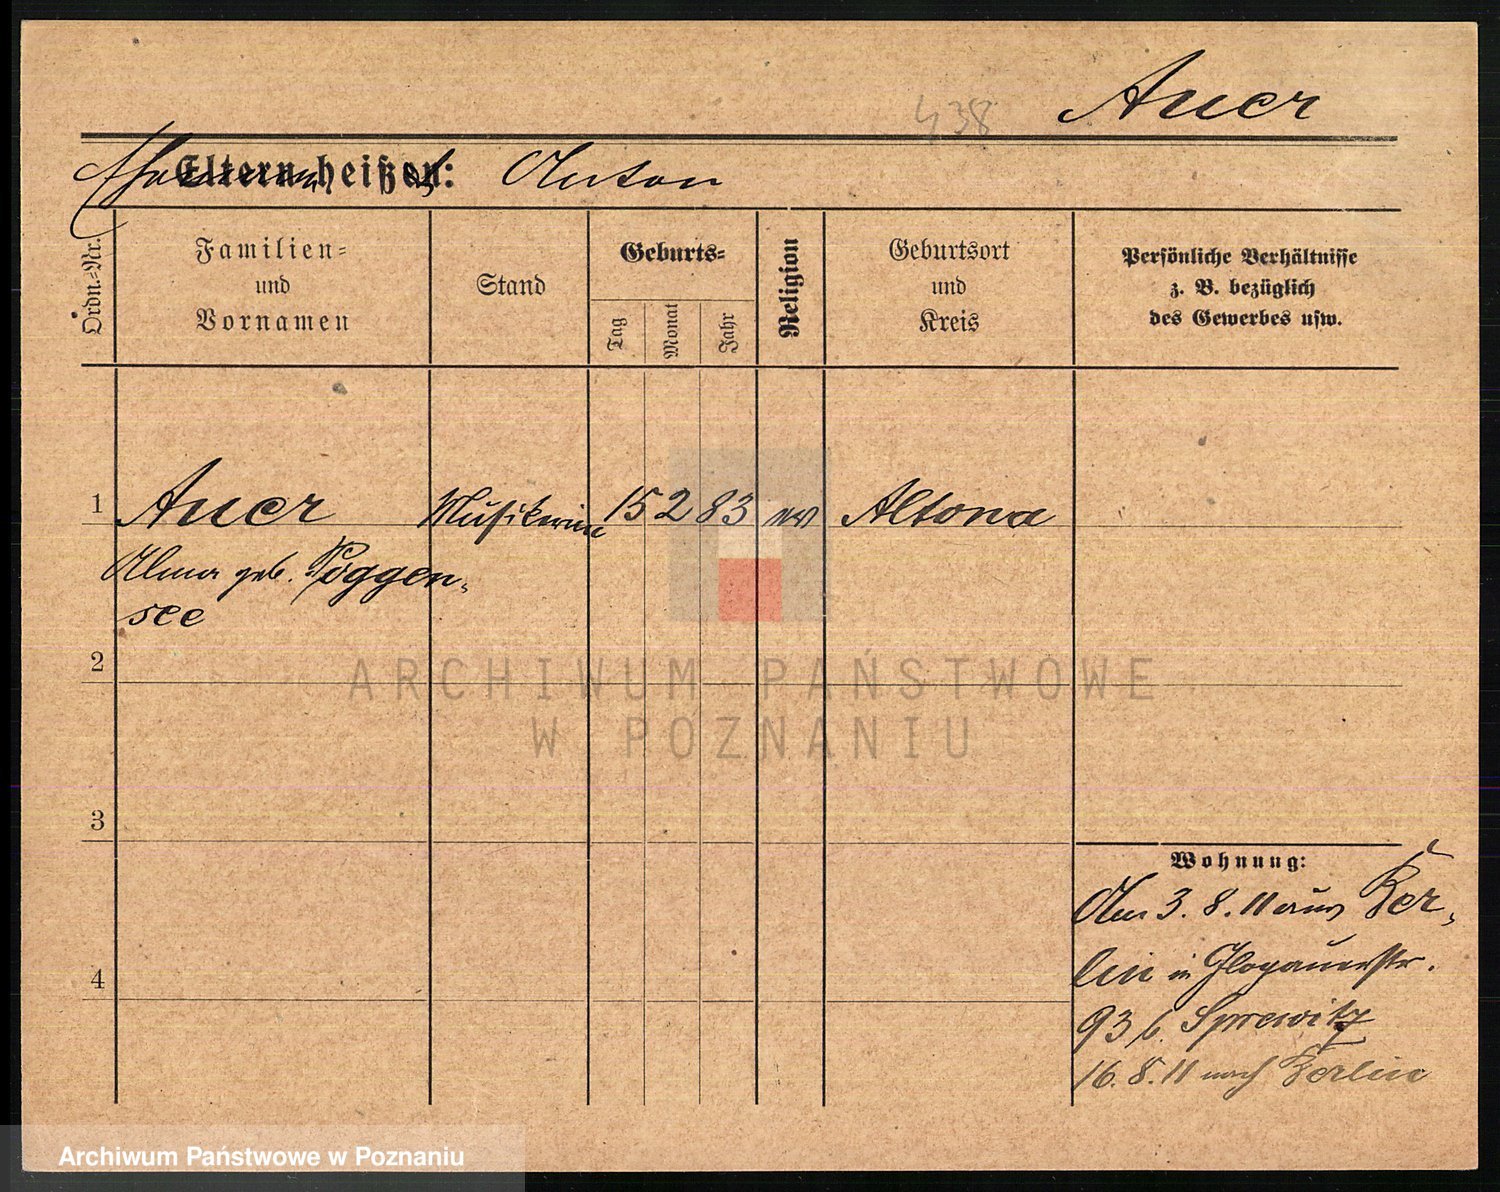 Auer
438
Eltern heißen: Anton
Ordn.-Nr.
Familien-
und
Vornamen
Stand
Geburts-
Tag
Monat
Jahr
Religion
Geburtsort
und
Kreis
Persönliche Verhältnisse
z. B. bezüglich
des Gewerbes usw.
1 Auer 15 2 83 ev Altona
Alma geb. Poggen-
see
2
3
4
Wohnung:
Am 3. 8. 11 aus Ber-
lin in Glogauerstr.
93 b. Sprewitz
16. 8. 11 nach Berlin
ARCHIWUM PAŃSTWOWE
W POZNANIU
Archiwum Państwowe w Poznaniu